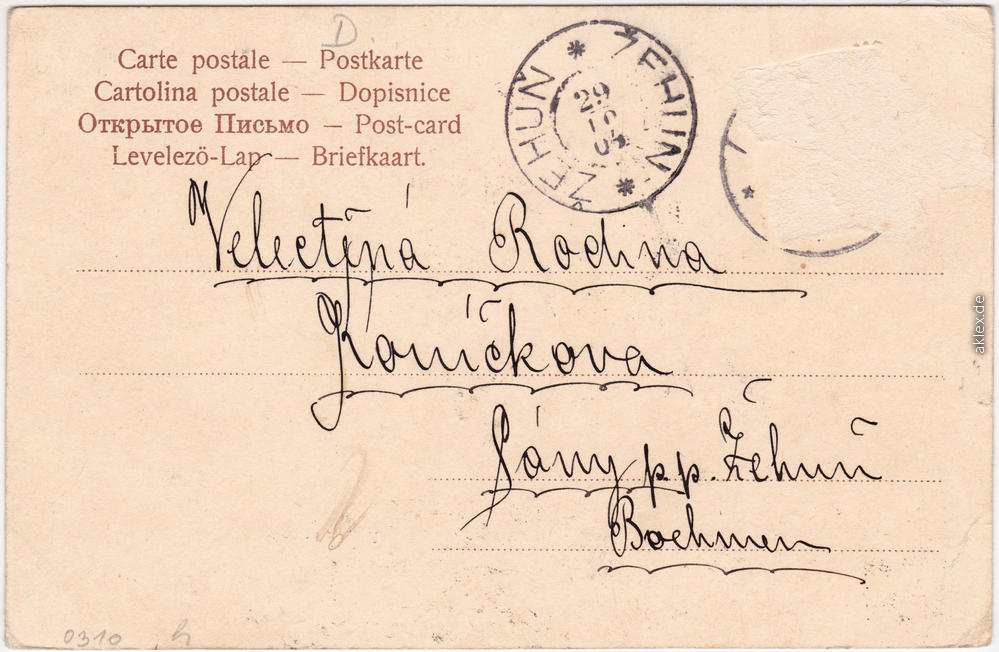 D.
Carte postale — Postkarte
Cartolina postale — Dopisnice
Открытое Письмо — Post-card
Levelező-Lap — Briefkaart.
ŽEHUŇ * ŽEHUŇ *
Velectěná Rodina
Koníčkova
Sány pp. Žehuň
Boehmen
0310
aklex.de